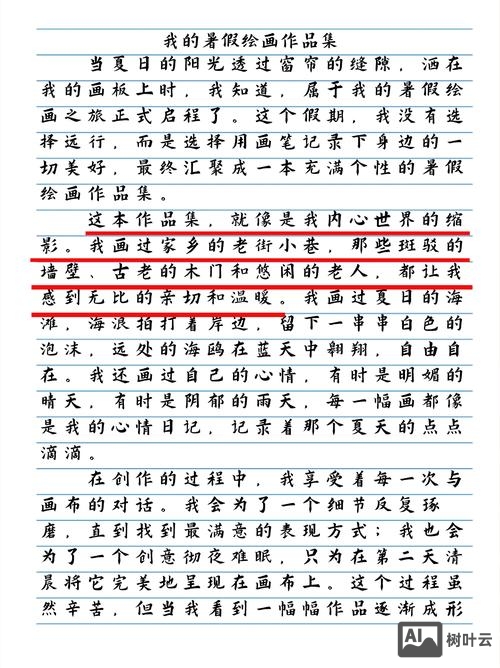 我的暑假绘画作品集
当夏日的阳光透过窗帘的缝隙，洒在
我的画板上时，我知道，属于我的暑假绘
画之旅正式启程了。这个假期，我没有选
择远行，而是选择用画笔记录下身边的一
切美好，最终汇聚成一本充满个性的暑假
绘画作品集。
这本作品集，就像是我内心世界的缩
影。我画过家乡的老街小巷，那些斑驳的
墙壁、古老的木门和悠闲的老人，都让我
感到无比的亲切和温暖。我画过夏日的海
滩，海浪拍打着岸边，留下一串串白色的
泡沫，远处的海鸥在蓝天中翱翔，自由自
在。我还画过自己的心情，有时是明媚的
晴天，有时是阴郁的雨天，每一幅画都像
是我的心情日记，记录着那个夏天的点点
滴滴。
在创作的过程中，我享受着每一次与
画布的对话。我会为了一个细节反复琢
磨，直到找到最满意的表现方式；我也会
为了一个创意彻夜难眠，只为在第二天清
晨将它完美地呈现在画布上。这个过程虽
然辛苦，但当我看到一幅幅作品逐渐成形
AI 树叶云